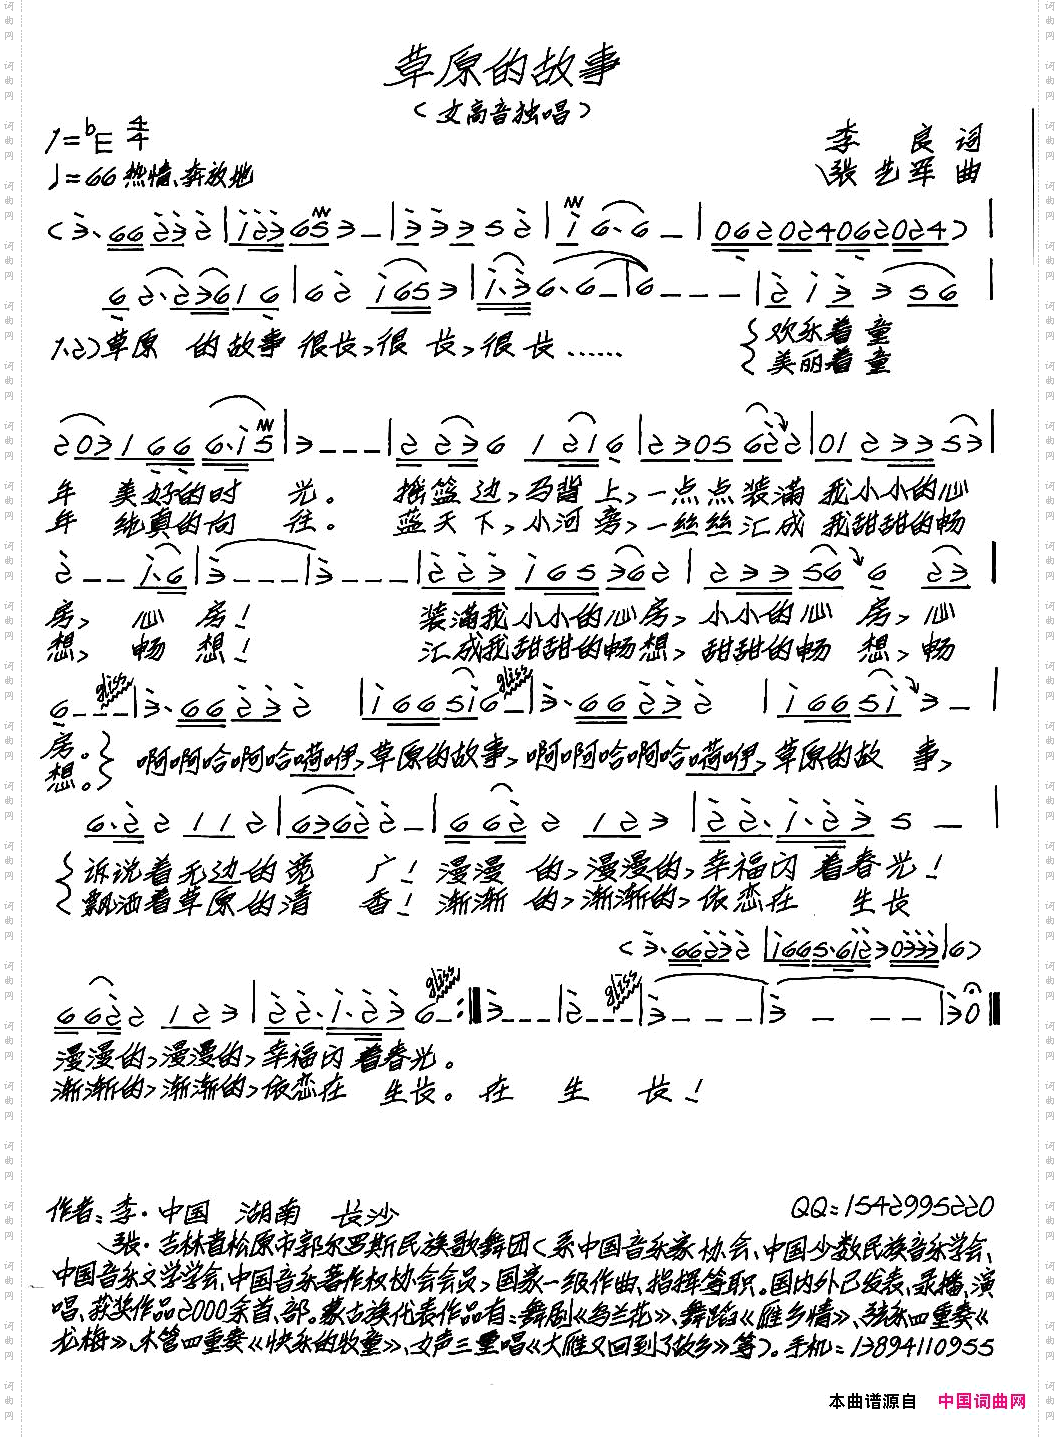 草原的故事
（女高音独唱）
1=♭E 4/4
李 良 词
♩=66 热情、奔放地
张艺军 曲
1.2)草原 的故事 很长,很 长,很长……
欢乐着童
美丽着童
年 美好的时 光。 摇篮 边,马背 上,一点点装满 我小小的心
年 纯真的向 往。 蓝天 下,小河 旁,一丝丝汇成 我甜甜的畅
房, 心 房! 装满我小小的心房,小小的心 房,心
想, 畅 想! 汇成我甜甜的畅想,甜甜的畅 想,畅
gliss gliss
房。 啊啊哈啊哈嗬咿,草原的故事,啊啊哈啊哈嗬咿,草原的故 事,
想。
诉说着无边的宽 广! 漫漫 的,漫漫的,幸福闪 着春光!
飘洒着草原的清 香! 渐渐 的,渐渐的,依恋在 生长
gliss gliss
漫漫的,漫漫的,幸福闪 着春光。
渐渐的,渐渐的,依恋在 生长。在 生 长!
作者:李·中国 湖南 长沙 QQ:1542995220
张·吉林省松原市郭尔罗斯民族歌舞团(系中国音乐家协会、中国少数民族音乐学会、
中国音乐文学学会、中国音乐著作权协会会员,国家一级作曲、指挥等职。国内外已发表、录播、演
唱、获奖作品2000余首、部。蒙古族代表作品有:舞剧《乌兰花》、舞蹈《雁乡情》、弦乐四重奏《
龙梅》、木管四重奏《快乐的牧童》、女声三重唱《大雁又回到了故乡》等)。手机:13894110955
本曲谱源自 中国词曲网